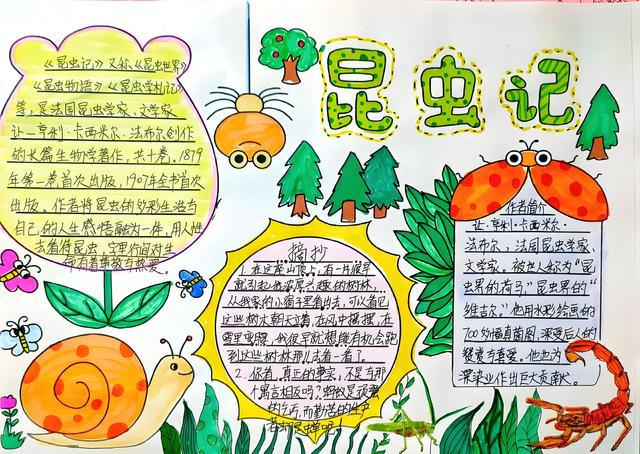 昆虫记
《昆虫记》又称《昆虫世界》
《昆虫物语》《昆虫学札记》
等,是法国昆虫学家、文学家
让-亨利·卡西米尔·法布尔创作
的长篇生物学著作,共十卷,1879
年第一卷首次出版,1907年全书首次
出版。作者将昆虫的多彩生活与
自己的人生感悟融为一体,用人性
去看待昆虫,字里行间对生
命有着尊敬与热爱。
摘抄
1.在这座山顶上,有一片很早
就引起他浓厚兴趣的树林,
从我家的小窗子里看出去,可以看见
这些树木朝天立着,在风中摇摆,在
雪里弯腰,我很早就想能有机会跑
到这些树林那儿去看一看了。
2.你看,真正的事实,不是与那
个寓言相反吗?蚂蚁是顽强
的乞丐,而勤苦的生产
者却是蝉呢!
作者简介
让·亨利·卡西米尔·
法布尔,法国昆虫学家、
文学家,被世人称为“昆
虫界的荷马”昆虫界的“
维吉尔。”他用水彩绘画的
700多幅真菌图,深受后人的
赞赏与喜爱。他也为
漂染业作出巨大贡献。